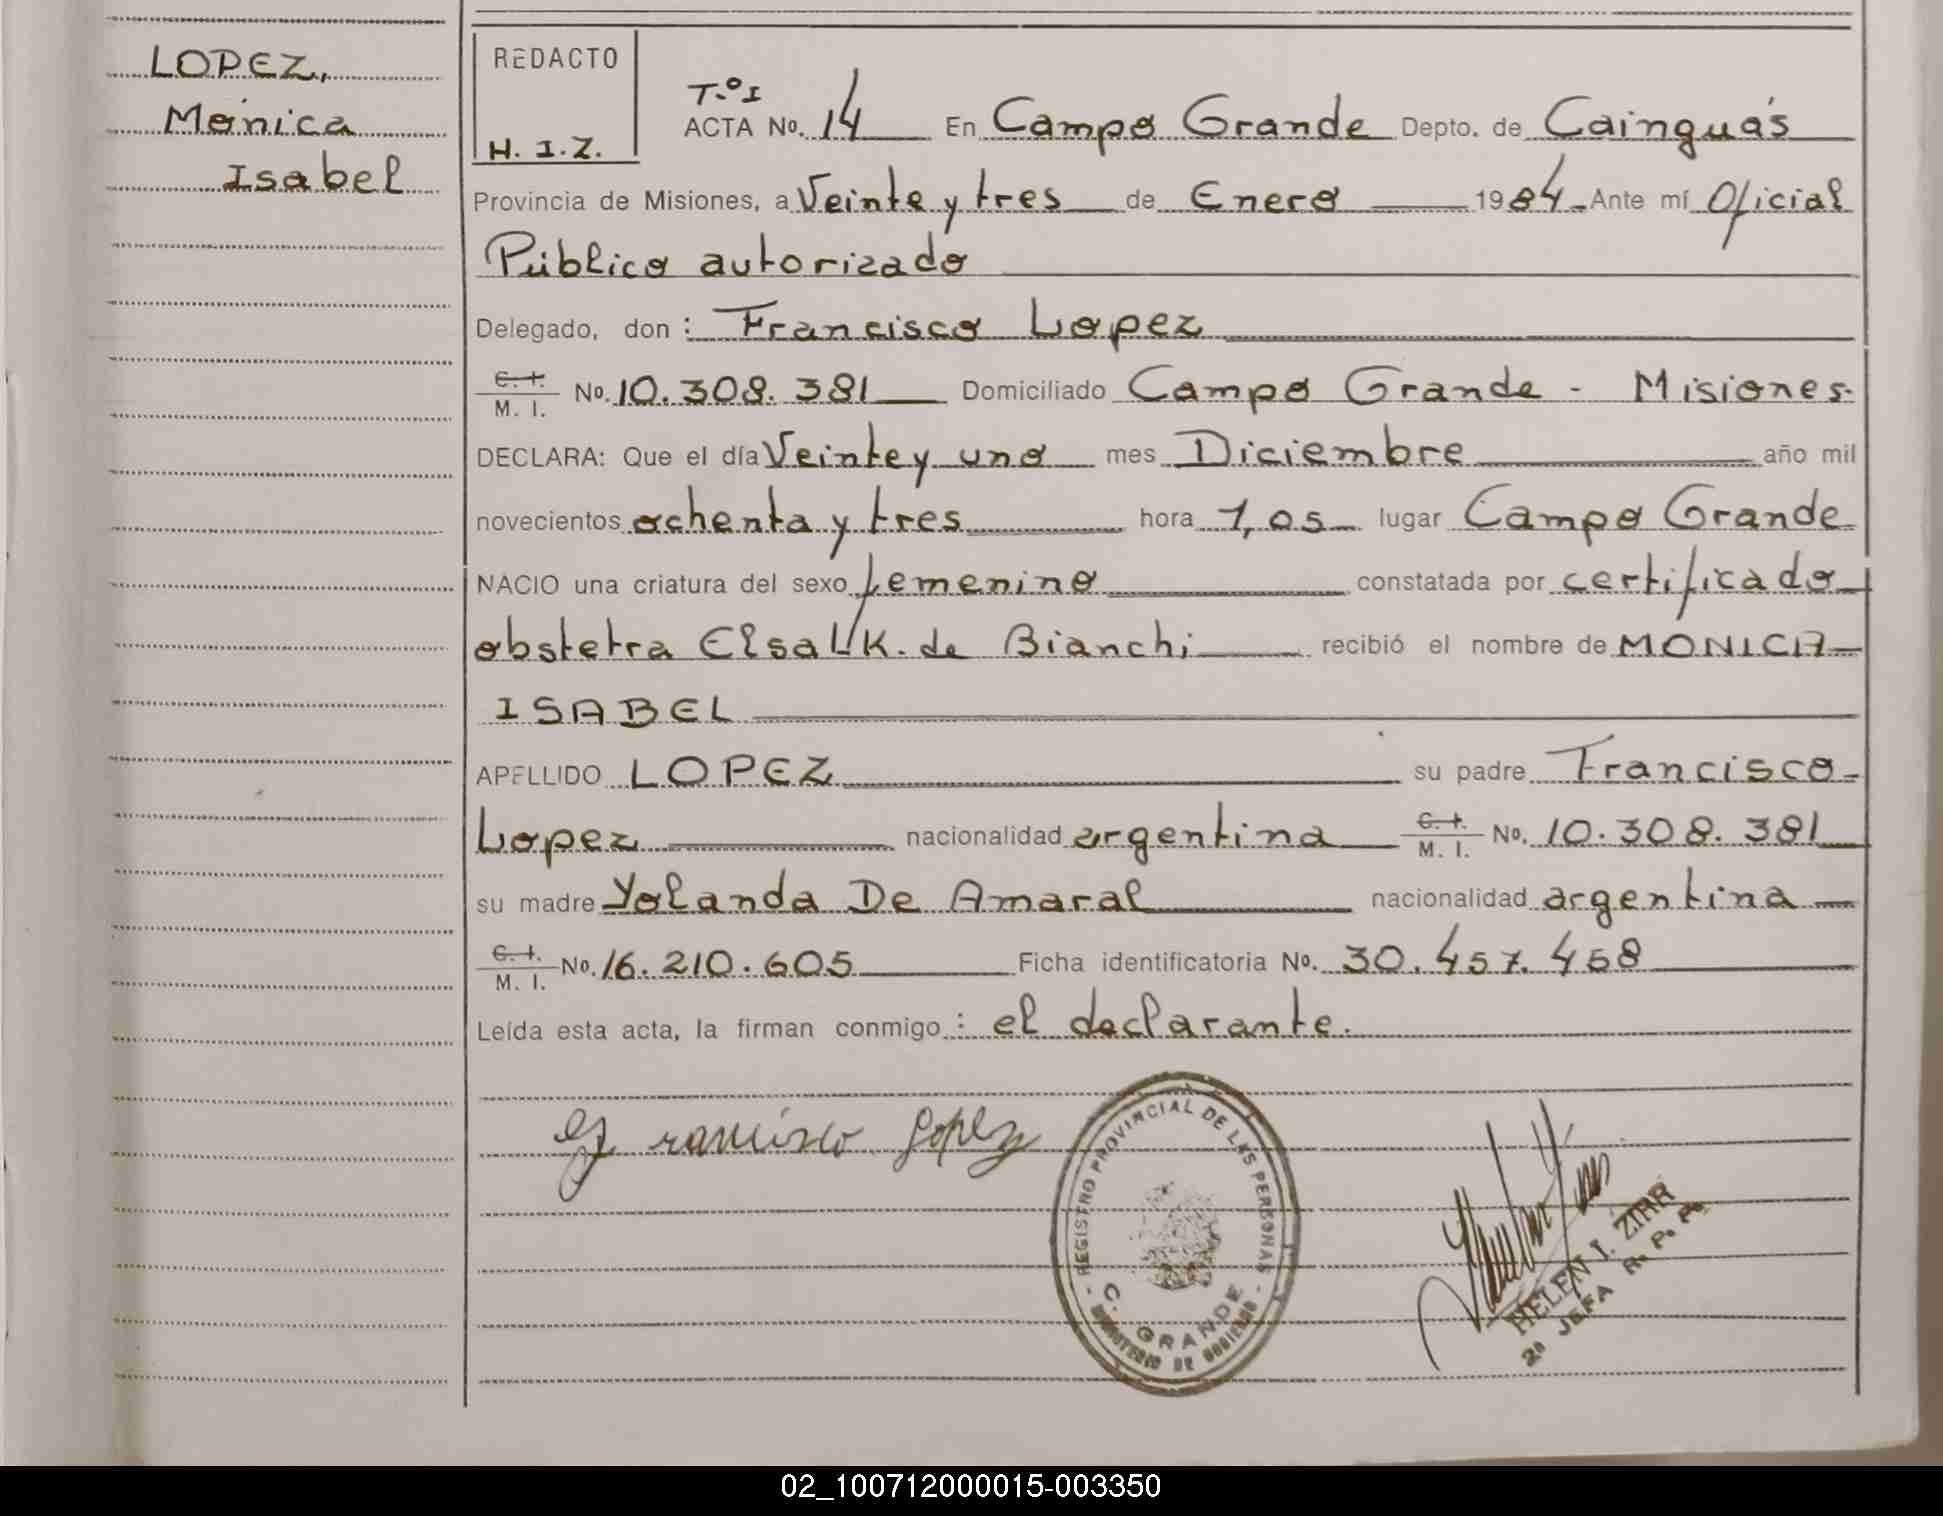 LOPEZ,
Mónica
Isabel
REDACTO
H. I. Z.
T.º I
ACTA No. 14 En Campo Grande Depto. de Cainguás
Provincia de Misiones, a Veinte y tres de Enero 1984 Ante mí Oficial
Público autorizado
Delegado, don : Francisco Lopez
C. I.
M. I. No. 10.308.381 Domiciliado Campo Grande - Misiones.
DECLARA: Que el día Veinte y uno mes Diciembre año mil
novecientos ochenta y tres hora 1,05 lugar Campo Grande
NACIO una criatura del sexo femenino constatada por certificado
obstetra Elsa K. de Bianchi recibió el nombre de MONICA
ISABEL
APELLIDO LOPEZ su padre Francisco
Lopez nacionalidad argentina C. I. M. I. No. 10.308.381
su madre Yolanda De Amaral nacionalidad argentina
C. I.
M. I. No. 16.210.605 Ficha identificatoria No. 30.457.458
Leída esta acta, la firman conmigo : el declarante.
Francisco Lopez
- REGISTRO PROVINCIAL DE LAS PERSONAS -
C. GRANDE
MINISTERIO DE GOBIERNO
HELEN I. ZIRR
2º JEFA R. P. P.
02_100712000015-003350